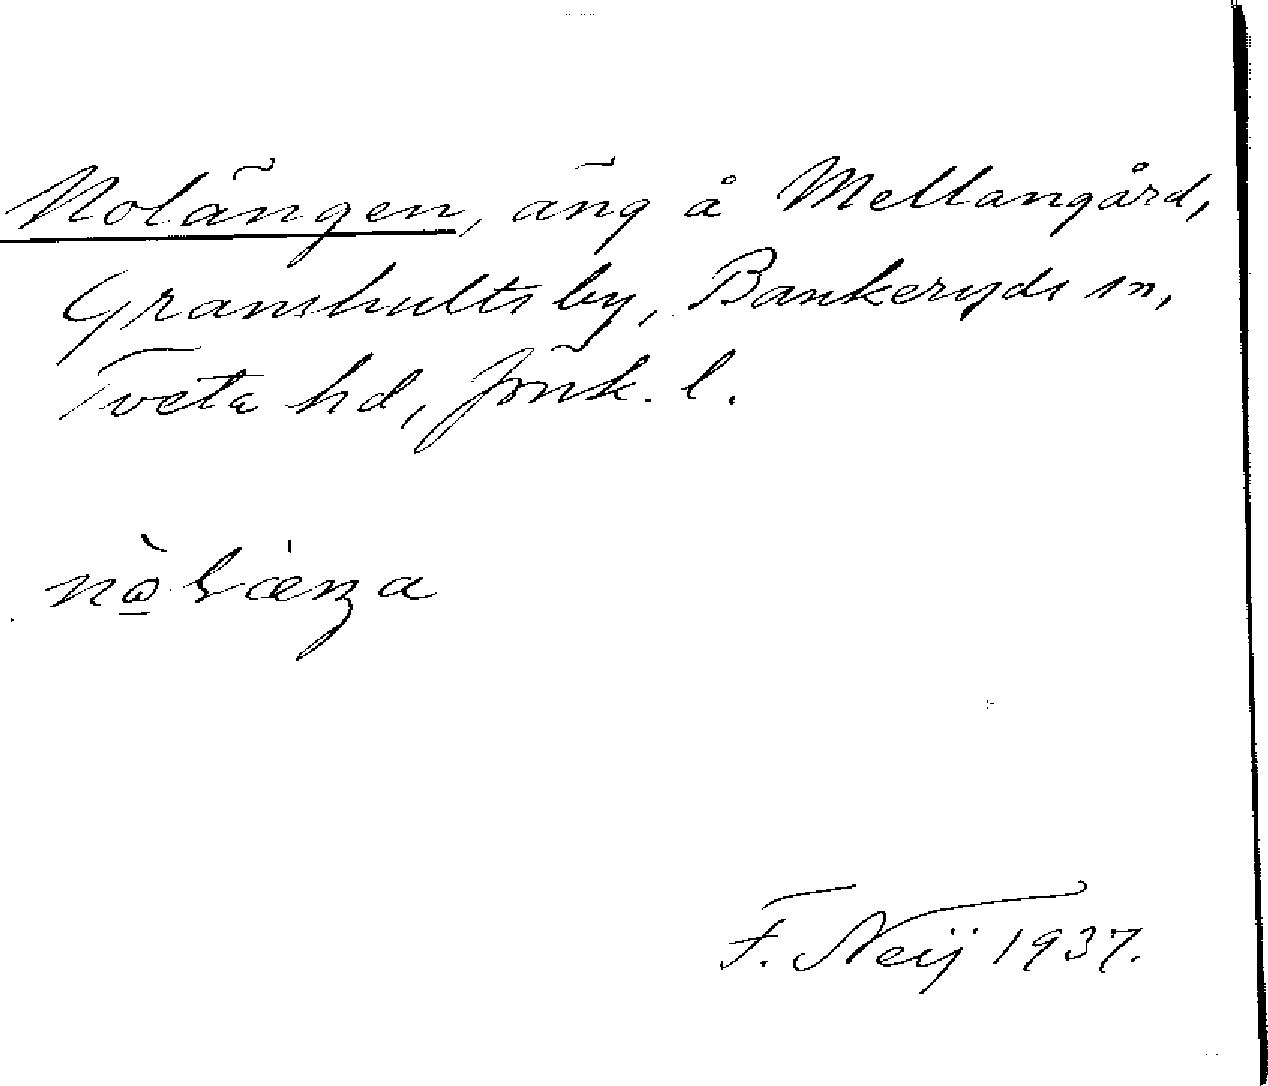 Nolängen, äng å Mellangård,
Granshults by, Bankeryds sn,
Tveta hd, Jönk. l.
F. Neij 1937.